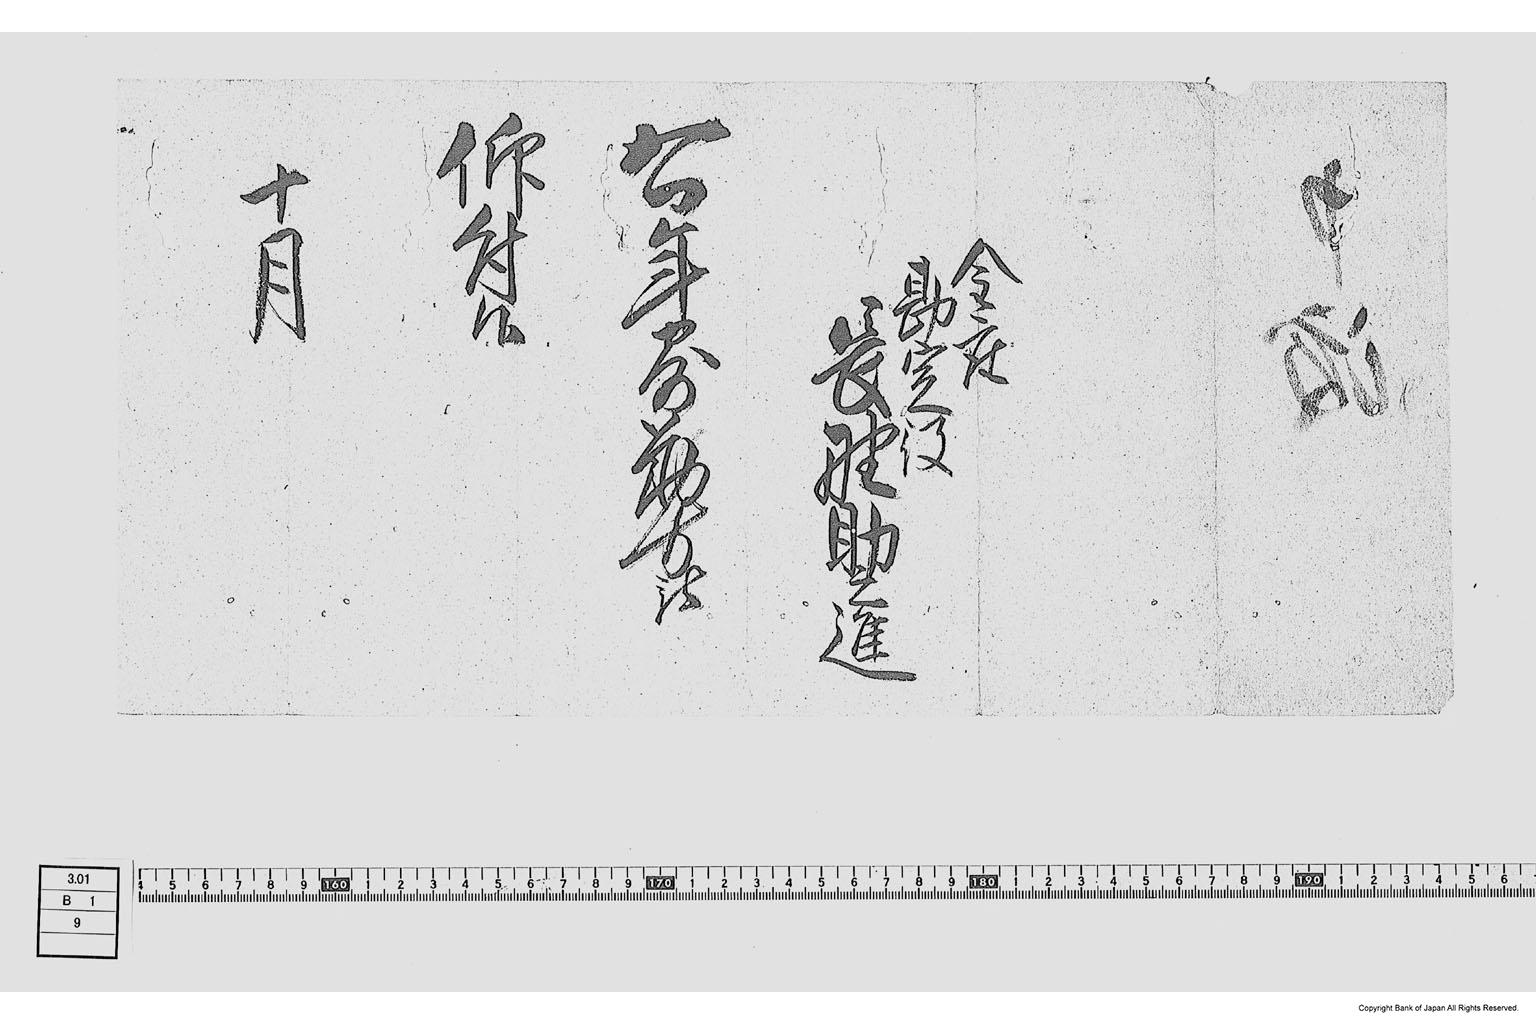 申渡
金座
勘定役
長 助之進
右年寄勤方被
仰付候
十月
3.01
B 1
9
4 5 6 7 8 9 160 1 2 3 4 5 6 7 8 9 170 1 2 3 4 5 6 7 8 9 180 1 2 3 4 5 6 7 8 9 190 1 2 3 4 5 6
Copyright Bank of Japan All Rights Reserved.